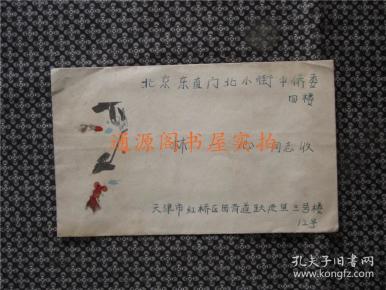 北京东直门北小街中侨委
四楼
林 同志收
道源阁书屋实拍
天津市红桥区 道 三号楼
12号
孔夫子旧书网